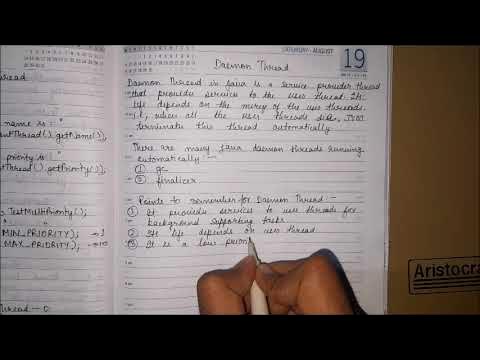 SATURDAY - AUGUST
19
Daemon Thread
Daemon Thread in Java is a service provider thread
that provides services to the user thread. Its
life depends on the mercy of the user threads
i.e., when all the user threads dies, JVM
terminate this thread automatically.
There are many java daemon threads running
automatically :-
① gc
② finalizer
Points to remember for Daemon Thread :-
① It provides services to user threads for
background supporting tasks
② Its life depends on user thread
③ It is a low priori
Thread
name is :"
entThread().getName();
priority is :"
Thread().getPriority()
TestMultiPriority();
MIN_PRIORITY); → 1
MAX_PRIORITY); → 10
Thread - 0
Aristocra